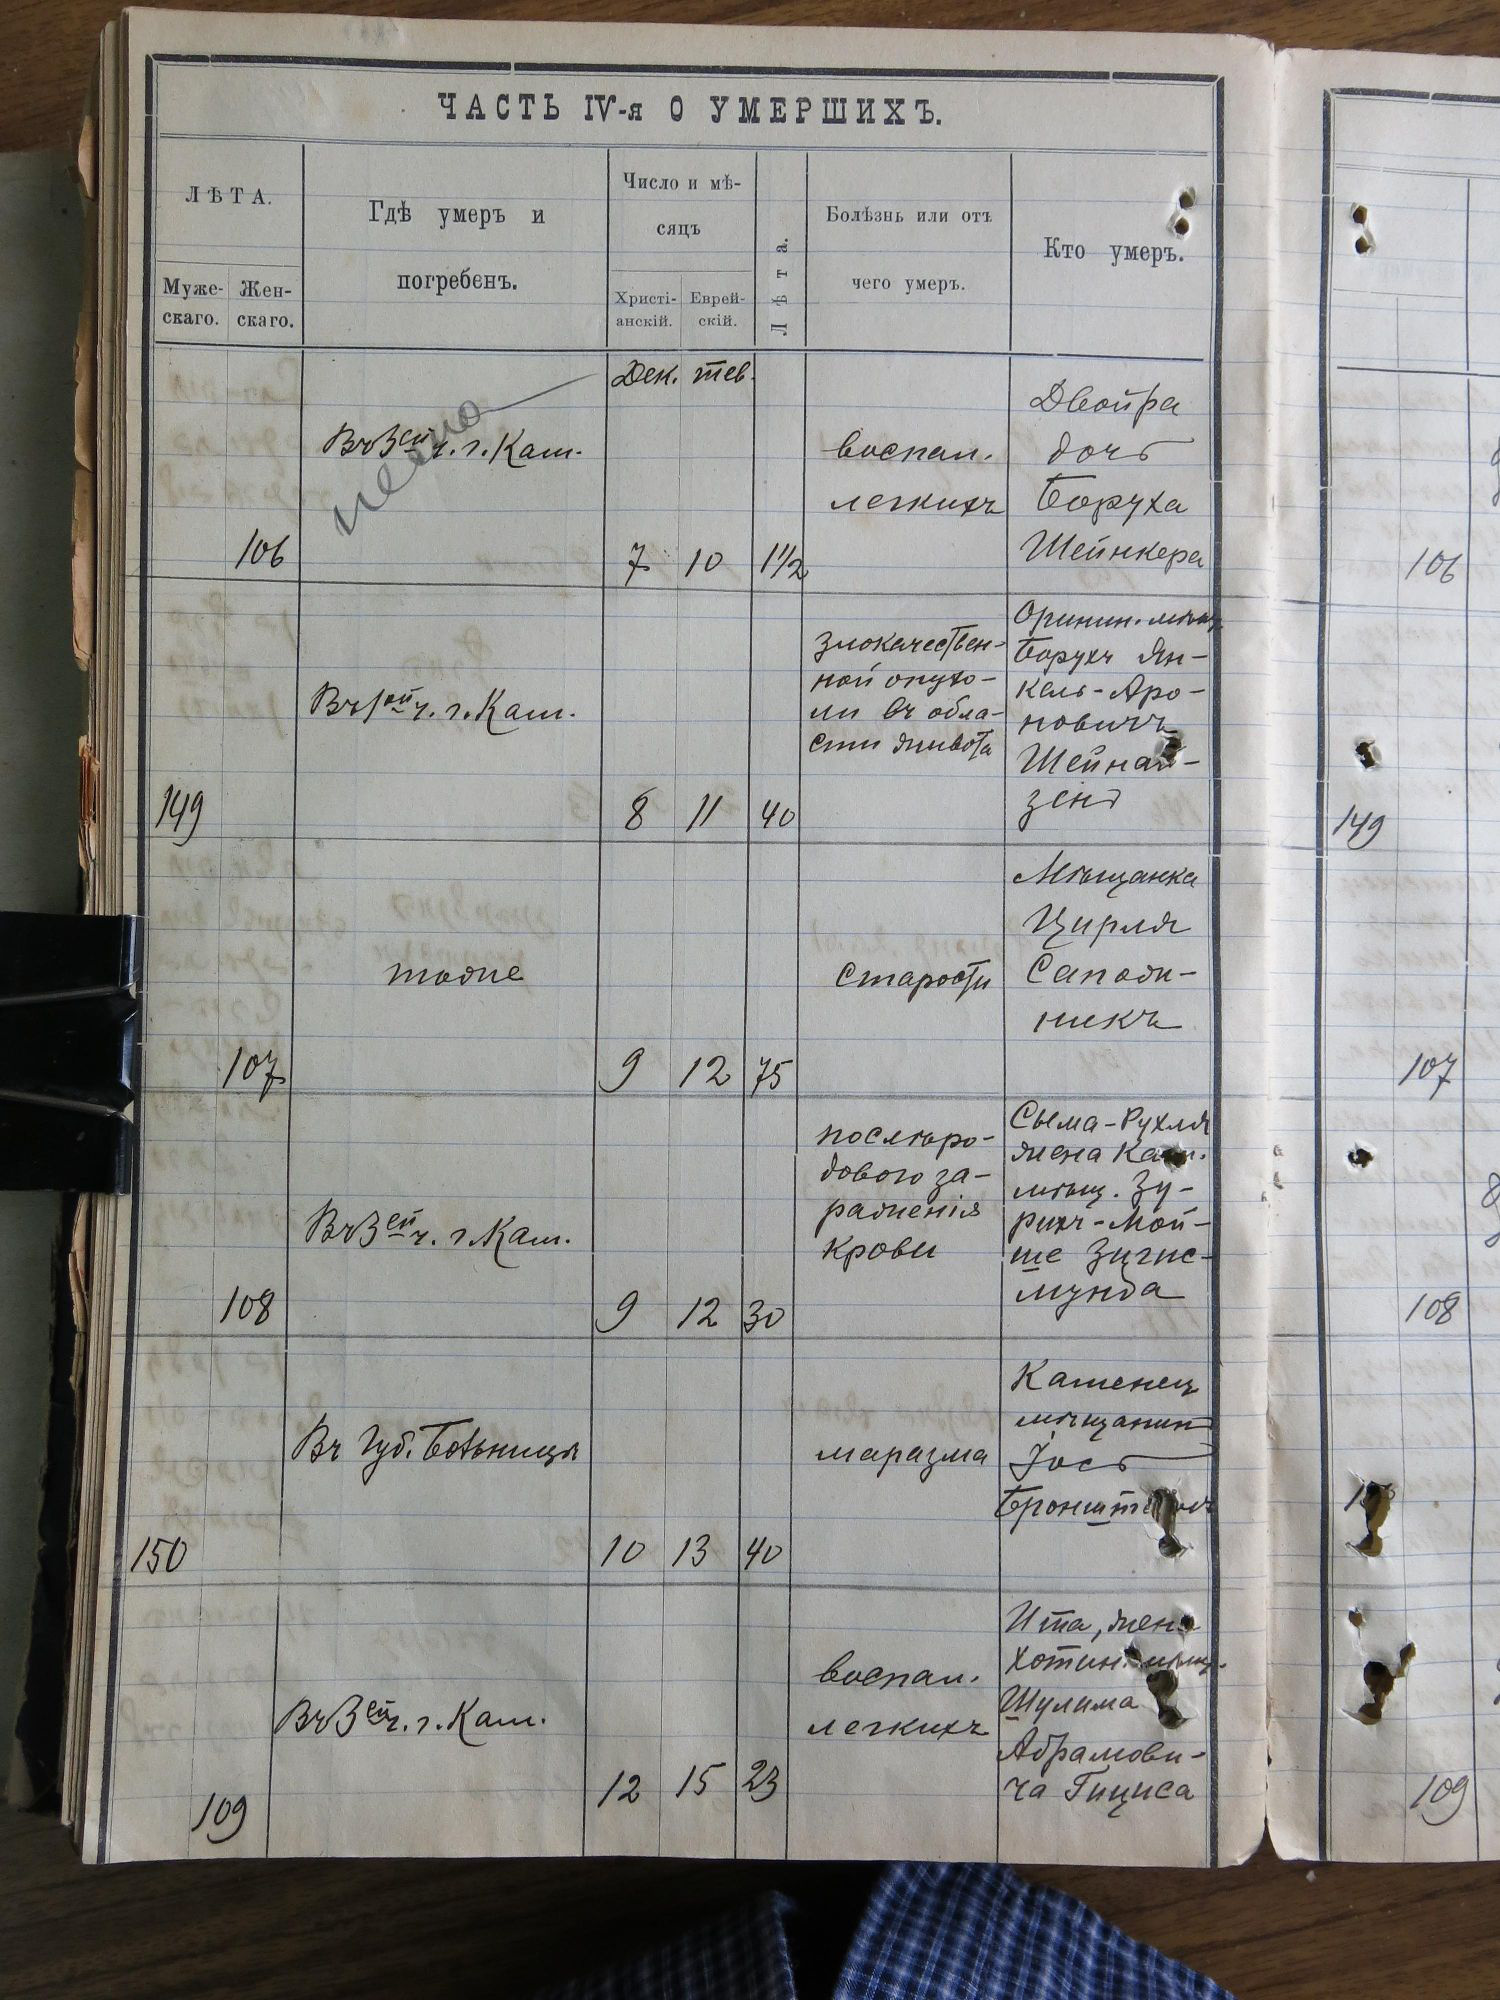 ЧАСТЬ IV-я О УМЕРШИХЪ.
ЛѢТА.
Муже-
скаго.
Жен-
скаго.
Гдѣ умеръ и
погребенъ.
Число и мѣ-
сяцъ
Христі-
анскій.
Еврей-
скій.
Лѣта.
Болѣзнь или отъ
чего умеръ.
Кто умеръ.
Дек. тев.
106
Въ 3ей ч. г. Кам.
7 10 1½
воспал.
легкихъ
Двойра
дочь
Боруха
Шейнкера
106
149
Въ 1ой ч. г. Кам.
8 11 40
злокачествен-
ной опухо-
ли въ обла-
сти живота
Оринин. мѣщ.
Борухъ Ян-
кель-Аро-
новичъ
Шейнай-
зенъ
149
107
тоже
9 12 75
старости
Мѣщанка
Цирля
Сапож-
никъ
107
108
Въ 3ей ч. г. Кам.
9 12 30
послѣро-
дового за-
раженія
крови
Сыма-Рухля
жена Кам.
мѣщ. Зу-
рихъ-Мой-
ше Зигис-
мунда
108
150
Въ Губ. Больницѣ
10 13 40
маразма
Каменец
мѣщанин
Іось
109
Въ 3ей ч. г. Кам.
12 15 23
воспал.
легкихъ
Ита, жена
Хотин. мѣщ.
Шулима
Абрамови-
ча Гициса
109